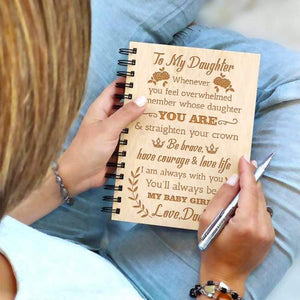 To My Daughter
Whenever
you feel overwhelmed
remember whose daughter
YOU ARE
& straighten your crown
Be brave,
have courage & love life
I am always with you
You'll always be
MY BABY GIRL
Love, Da